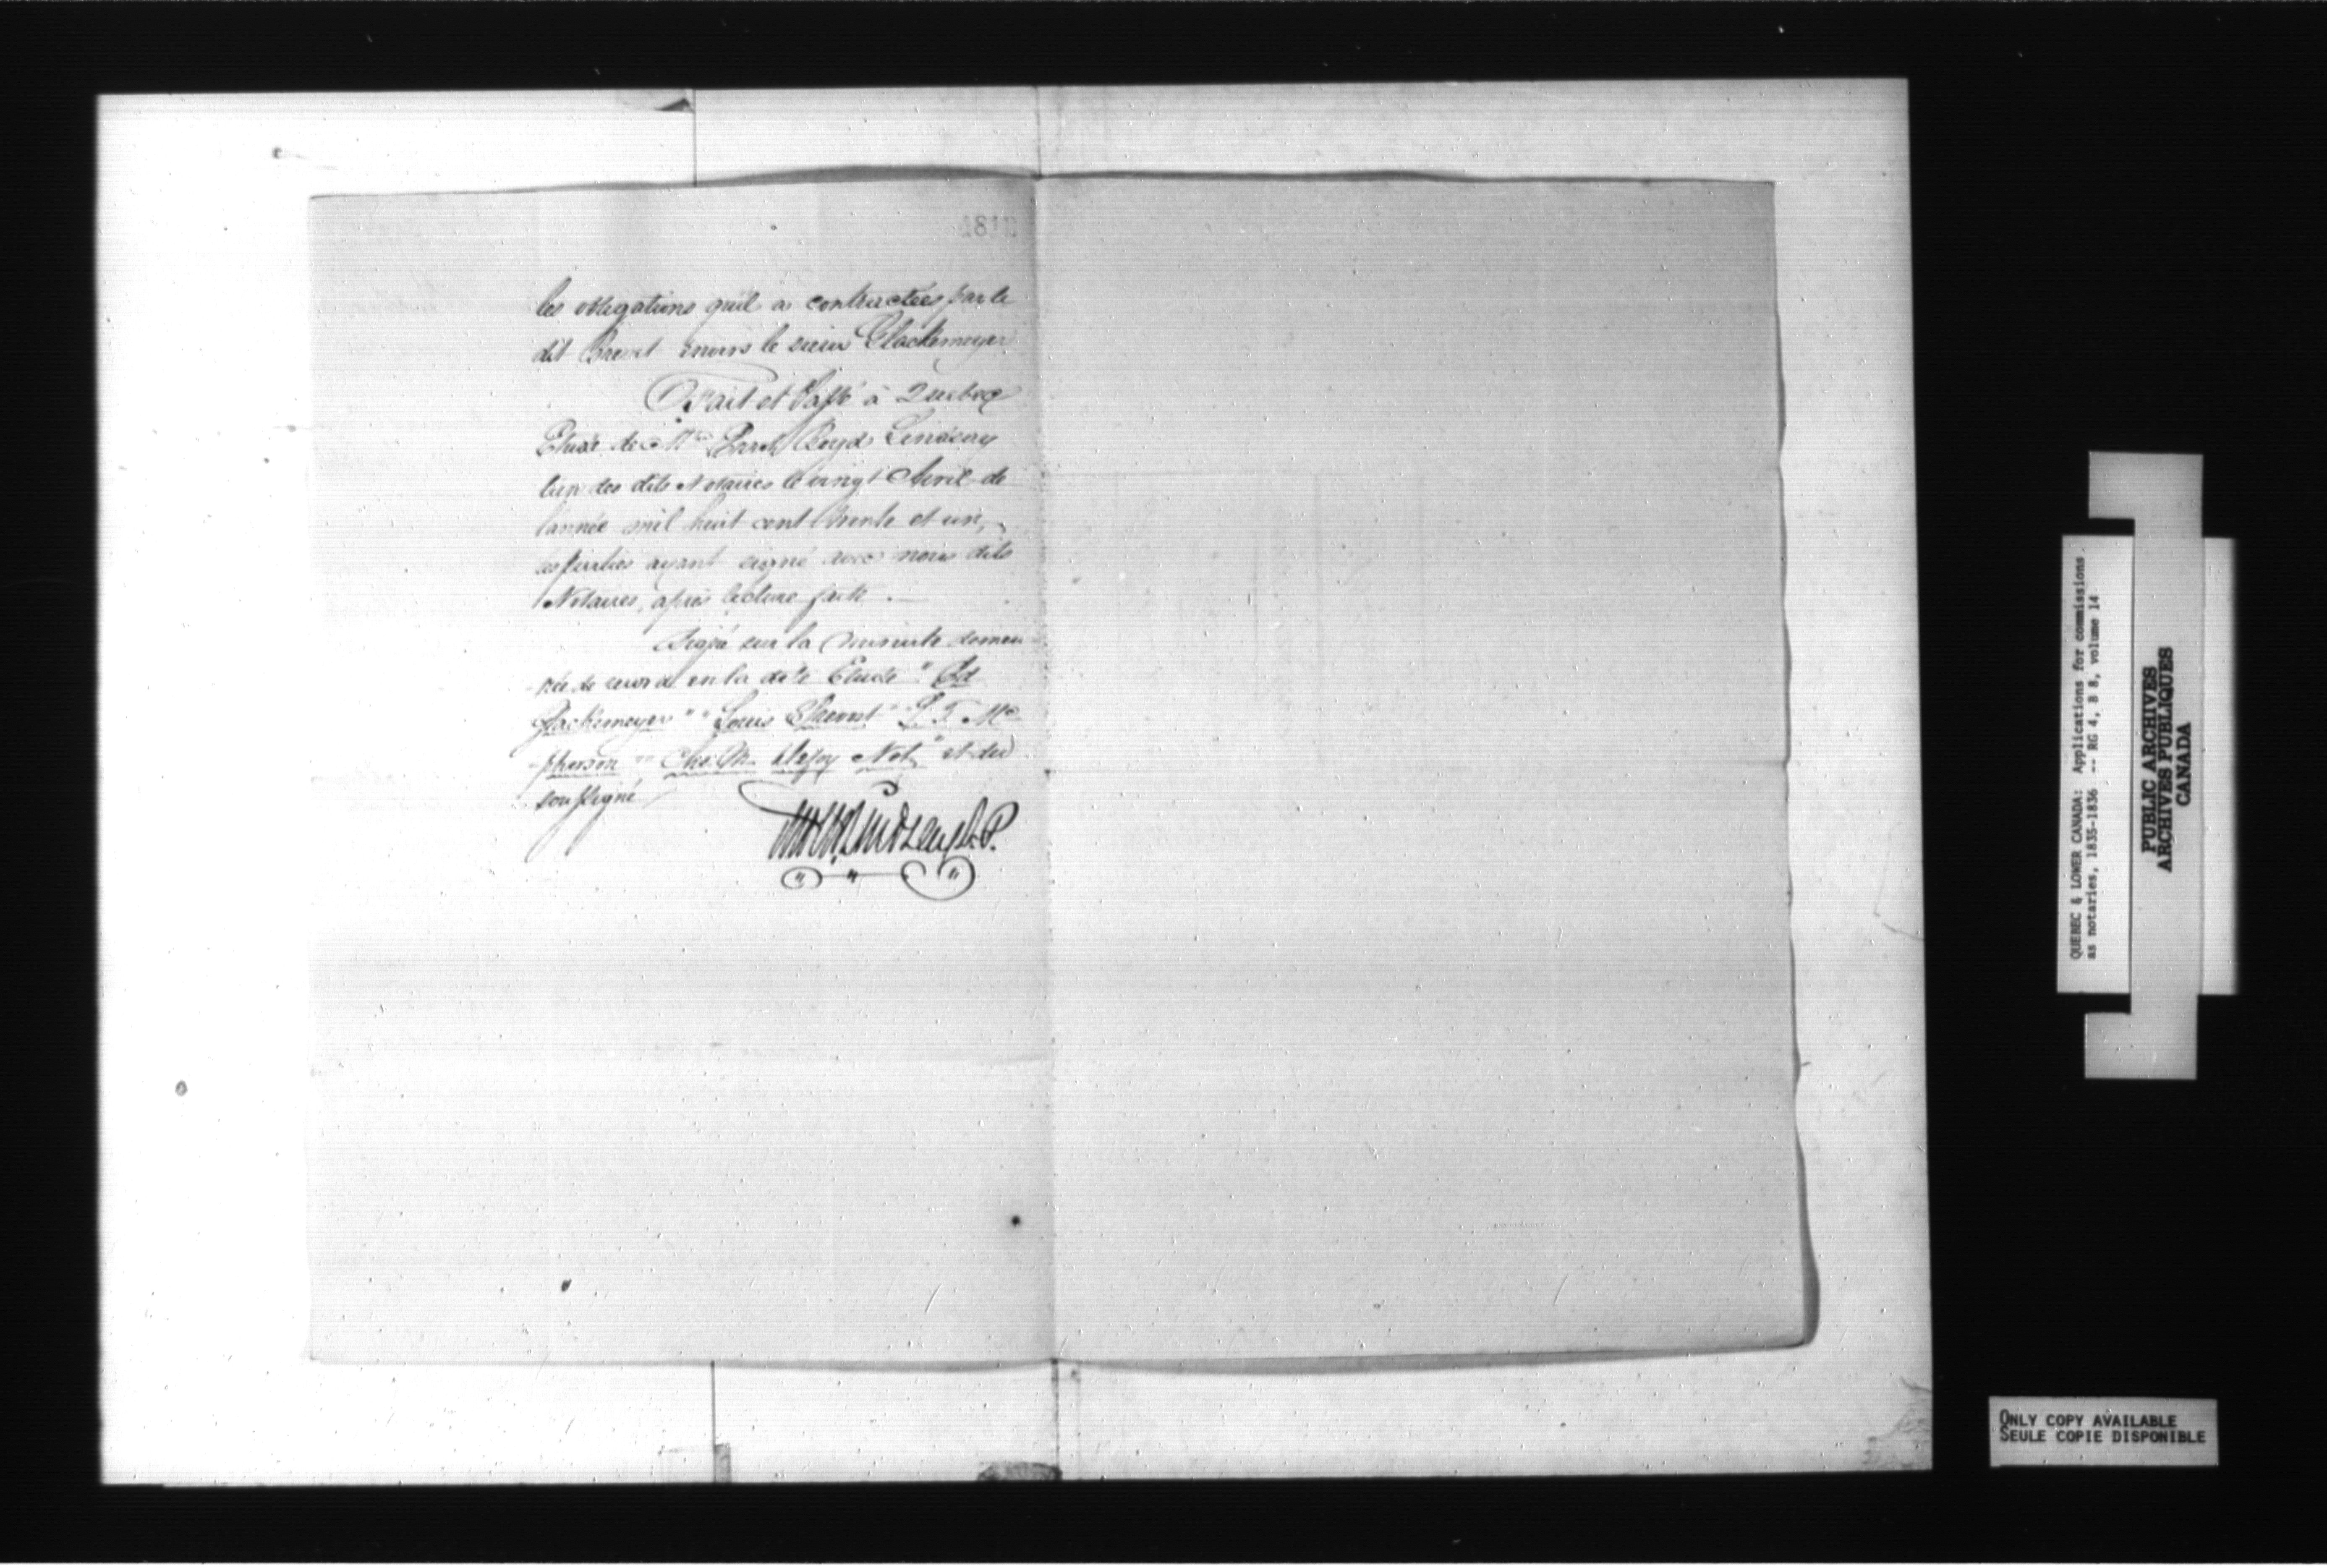 les obligations qu'il a contractées par le
dit Brevet envers le sieur Glackemeyer
Fait et Passé à Quebec
Etude de Mtre Errol Boyd Lindsay
l'un des dits Notaires le vingt Avril de
l'année mil huit cent trente et un,
les parties ayant signé avec nous dits
Notaires, après lecture faite. —
Signé sur la minute demeu-
-rée de record en la dite Etude " Ed
Glackemeyer " " Louis Prevost " L. T. Mc-
-pherson " " Chs. M. Defoy Not. " et du
soussigné
Lindsay N.P.
QUEBEC & LOWER CANADA: Applications for commissions
as notaries, 1835-1836 -- RG 4, B 8, volume 14
PUBLIC ARCHIVES
ARCHIVES PUBLIQUES
CANADA
ONLY COPY AVAILABLE
SEULE COPIE DISPONIBLE